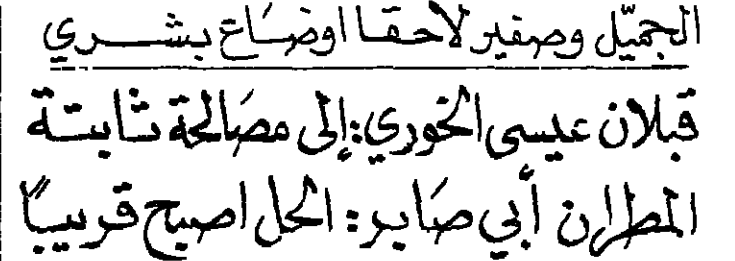 الجميّل وصفير لاحقا اوضاع بشري
قبلان عيسى الخوري: إلى مصالحة ثابتة
المطران أبي صابر: الحل اصبح قريباً